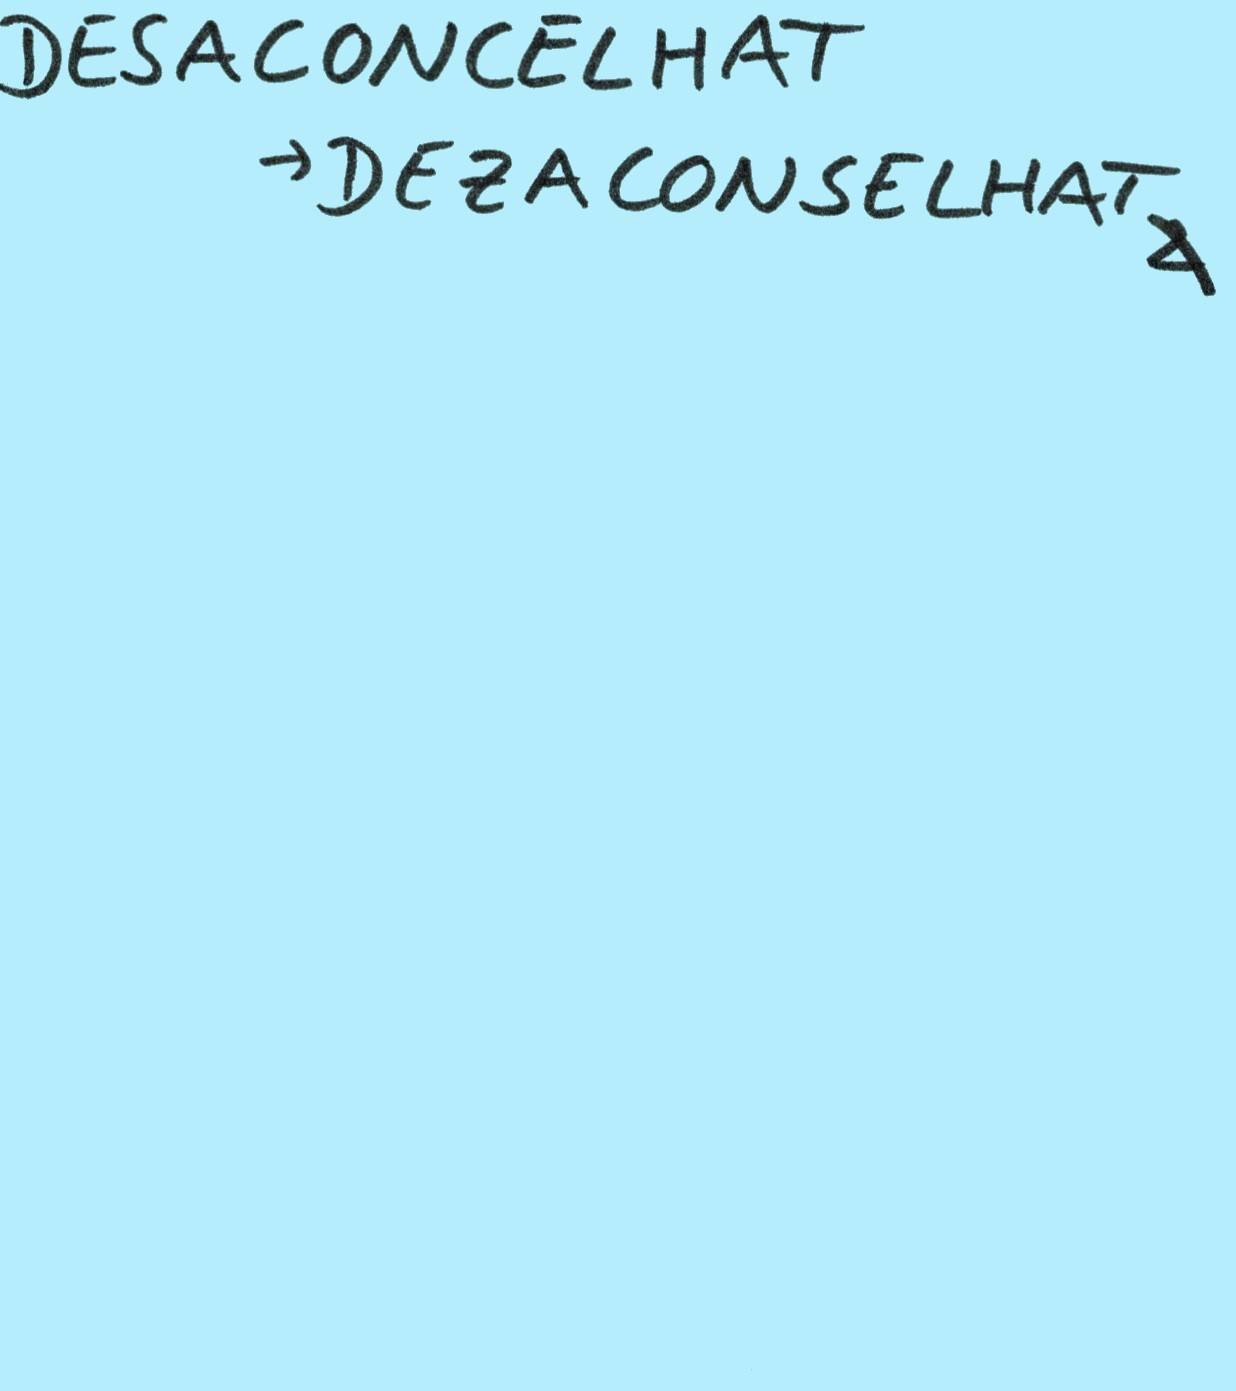 DESACONCELHAT
→DEZACONSELHATA